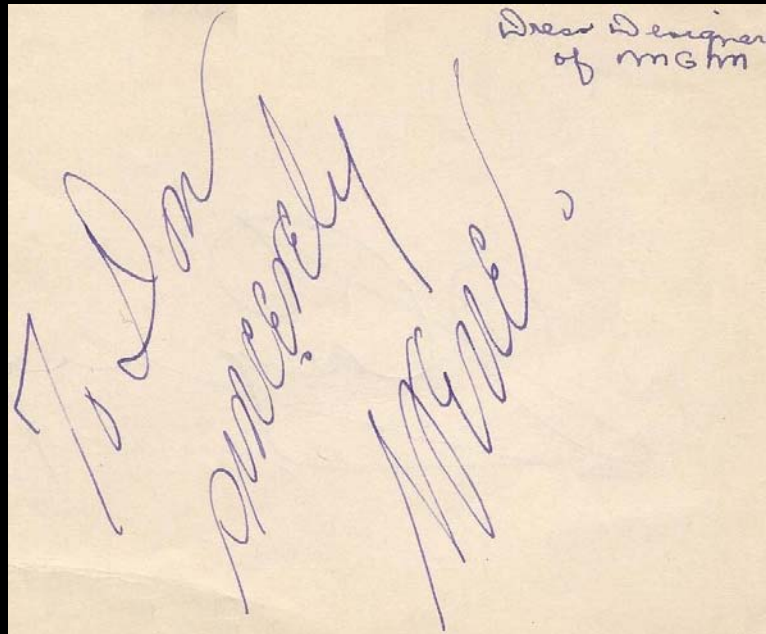 Dress Designer
of MGM
To Don
Sincerely
Irene.